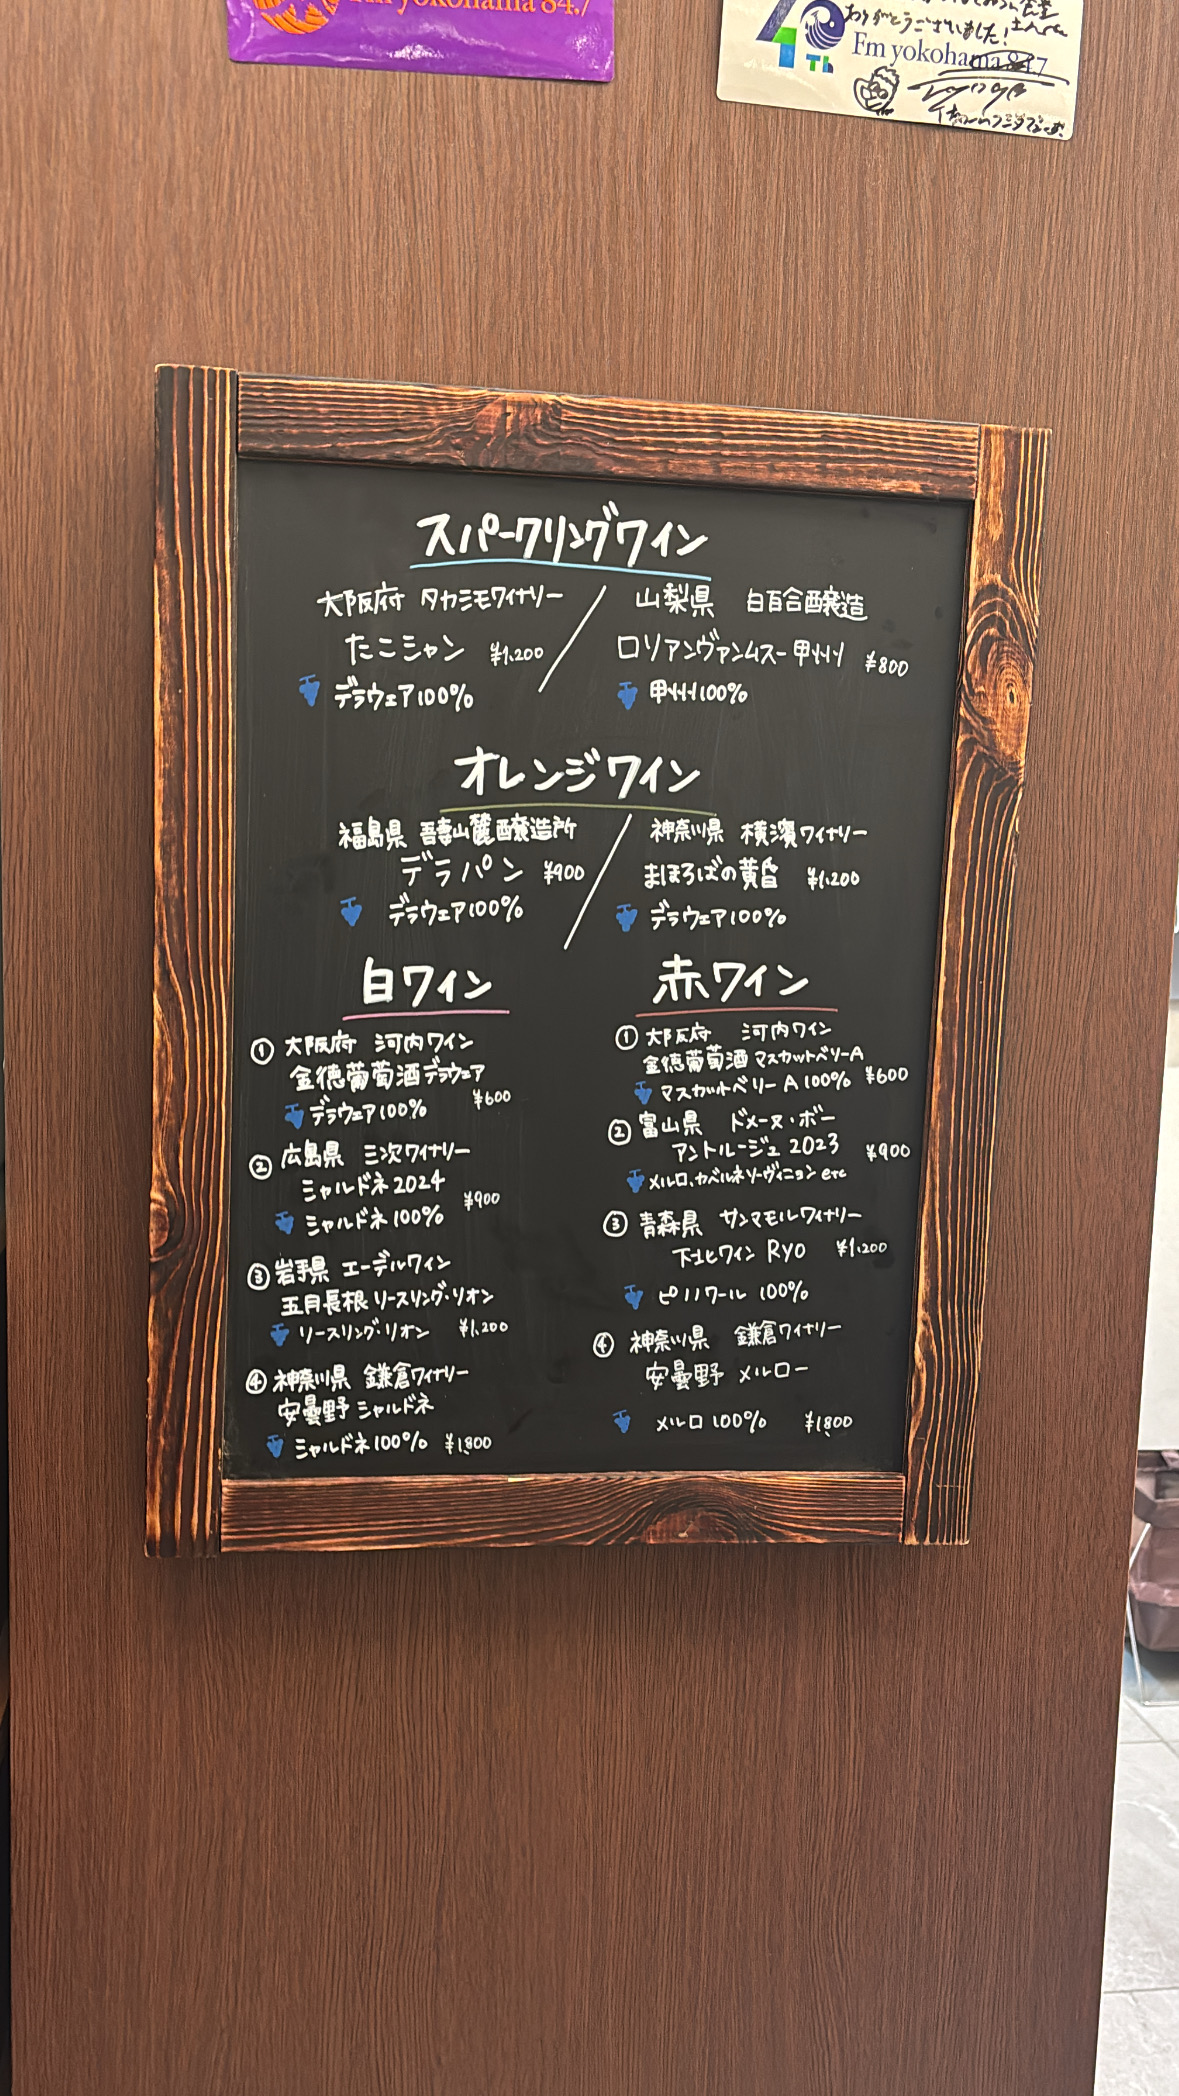 Fm yokohama 84.7
ありがとうございました!
40Th
Fm yokohama 84.7
スパークリングワイン
大阪府 タカシモワイナリー
たこシャン ¥1,200
デラウェア100%
山梨県 白百合醸造
ロリアンヴァンムスー甲州 ¥800
甲州100%
オレンジワイン
福島県 吾妻山麓醸造所
デラパン ¥900
デラウェア100%
神奈川県 横濱ワイナリー
まほろばの黄昏 ¥1,200
デラウェア100%
白ワイン
① 大阪府 河内ワイン
金徳葡萄酒デラウェア
デラウェア100% ¥600
② 広島県 三次ワイナリー
シャルドネ2024
シャルドネ100% ¥900
③ 岩手県 エーデルワイン
五月長根リースリング・リオン
リースリング・リオン ¥1,200
④ 神奈川県 鎌倉ワイナリー
安曇野シャルドネ
シャルドネ100% ¥1,800
赤ワイン
① 大阪府 河内ワイン
金徳葡萄酒マスカットベリーA
マスカットベリーA100% ¥600
② 富山県 ドメーヌ・ボー
アントルージュ2023 ¥900
メルロ、カベルネソーヴィニョンetc
③ 青森県 サンマモルワイナリー
下北ワイン Ryo ¥1,200
ピノノワール 100%
④ 神奈川県 鎌倉ワイナリー
安曇野 メルロー
メルロ 100% ¥1,800